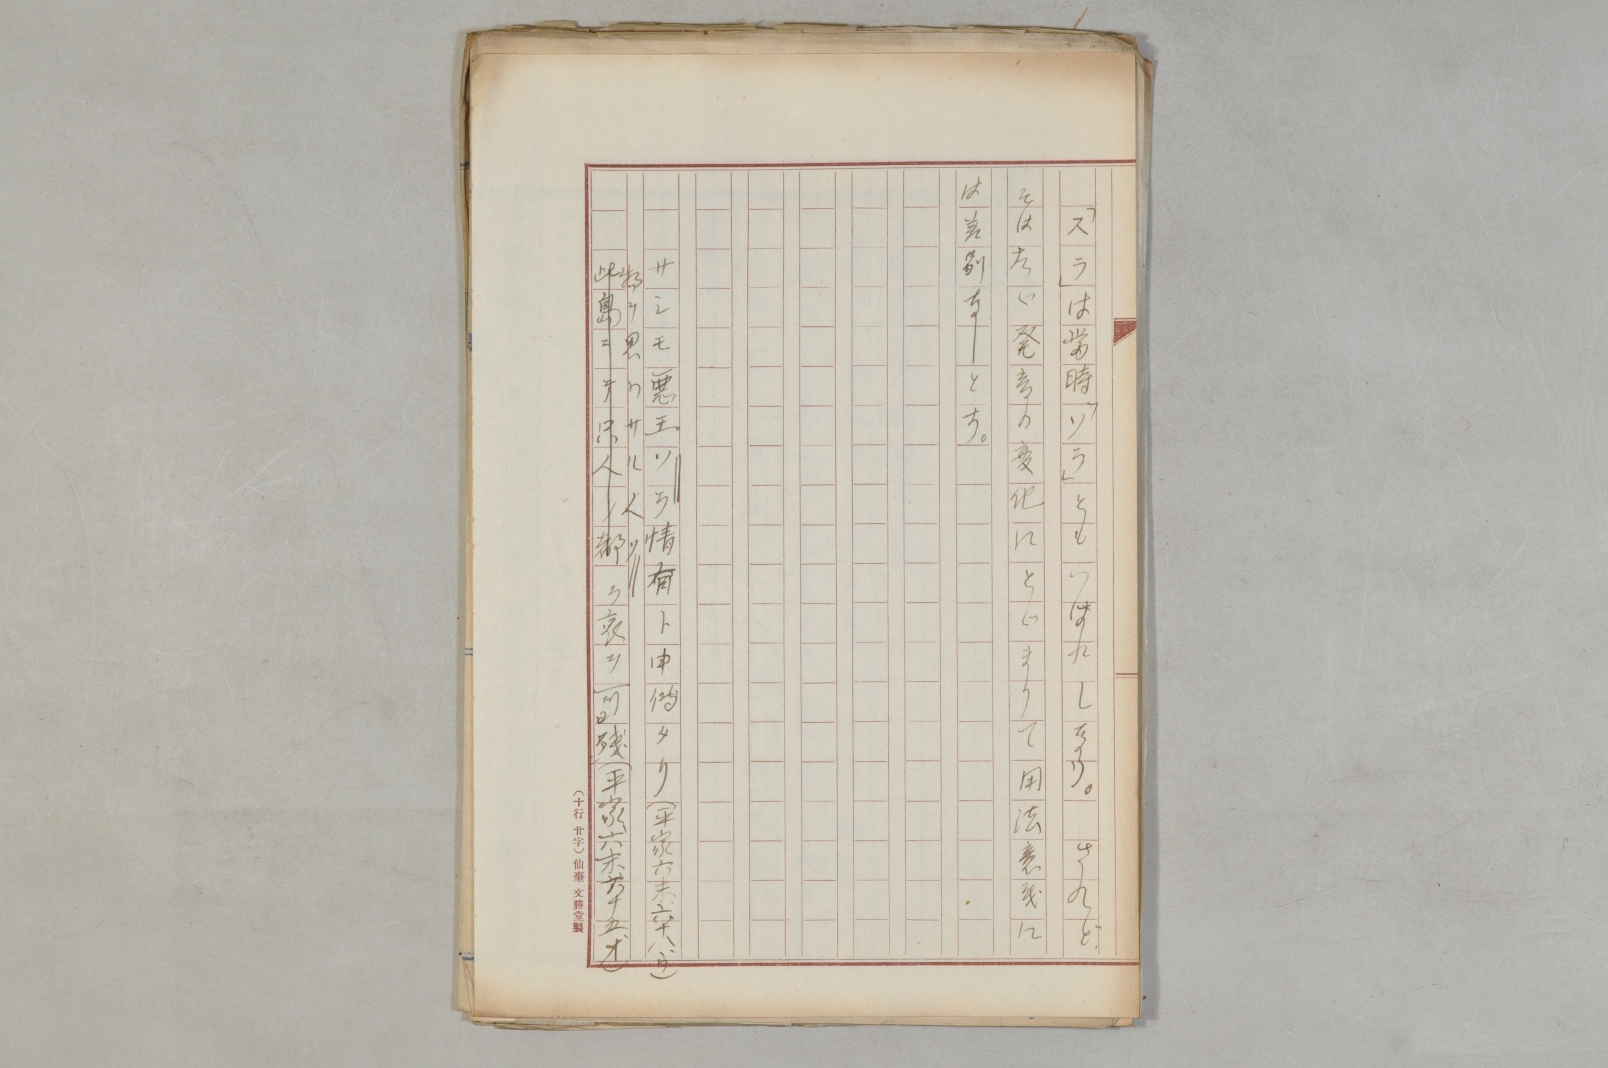 「スラ」は当時「ソラ」ともいはれしなり。 されど
そはたゞ発音の変化にとゞまりて用法意義に
は差別なしとす。
サシモ悪王ソラ情有ト申傳タリ(平家六末六十八ウ)
物ヲ思ワサル人ソ
此島ニ 人ノ都ヲ
(十行 廿字)仙臺 文勝堂製